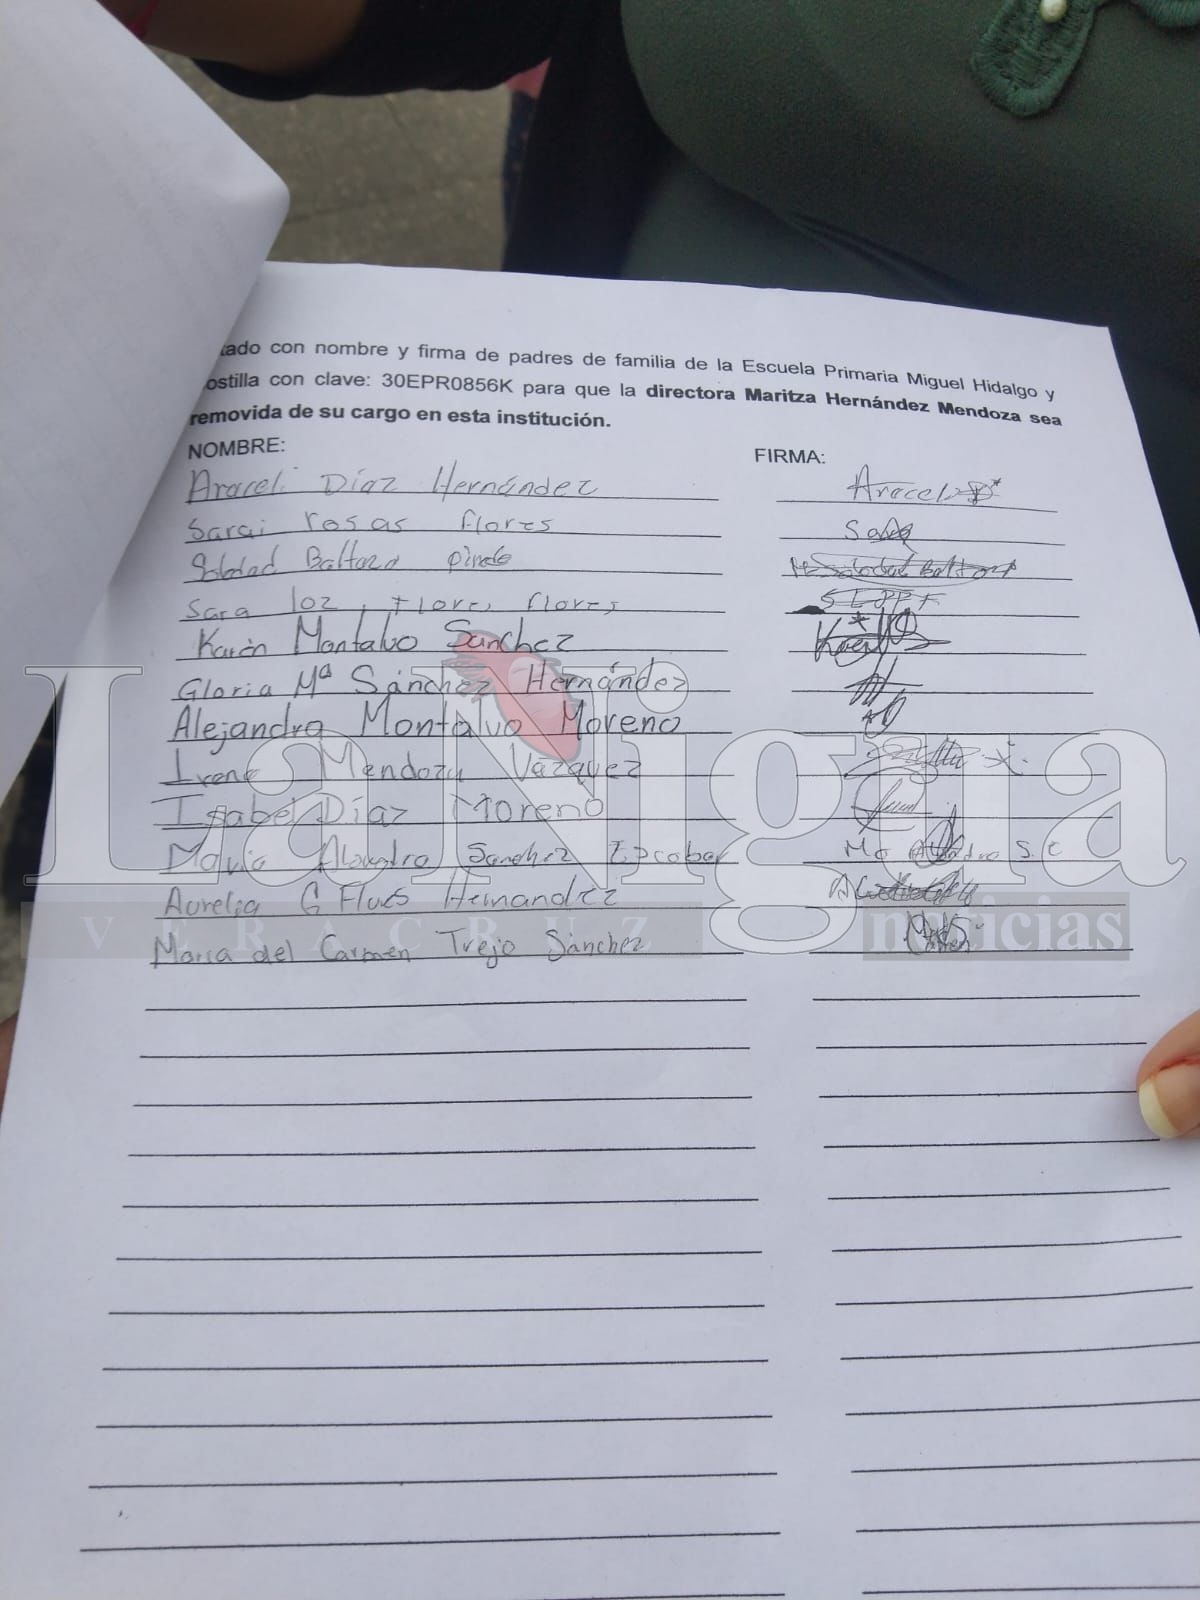 tado con nombre y firma de padres de familia de la Escuela Primaria Miguel Hidalgo y
ostilla con clave: 30EPR0856K para que la directora Maritza Hernández Mendoza sea
removida de su cargo en esta institución.
NOMBRE: FIRMA:
Araceli Díaz Hernández Araceli
Sarai rosas flores Sara
Soledad Baltaza Soledad Baltaza
Sara loz Flores flores SLPFF
Karen Montalvo Sanchez Karen
Gloria Mª Sánchez Hernández
Alejandra Montalvo Moreno
Irene Mendoza Vázquez
Isabel Díaz Moreno
Maria Alexandra Sanchez Escobar Ma S.E
Aurelia G Flures Hernandez
Maria del Carmen Trejo Sánchez
La Nigua
VERACRUZ noticias